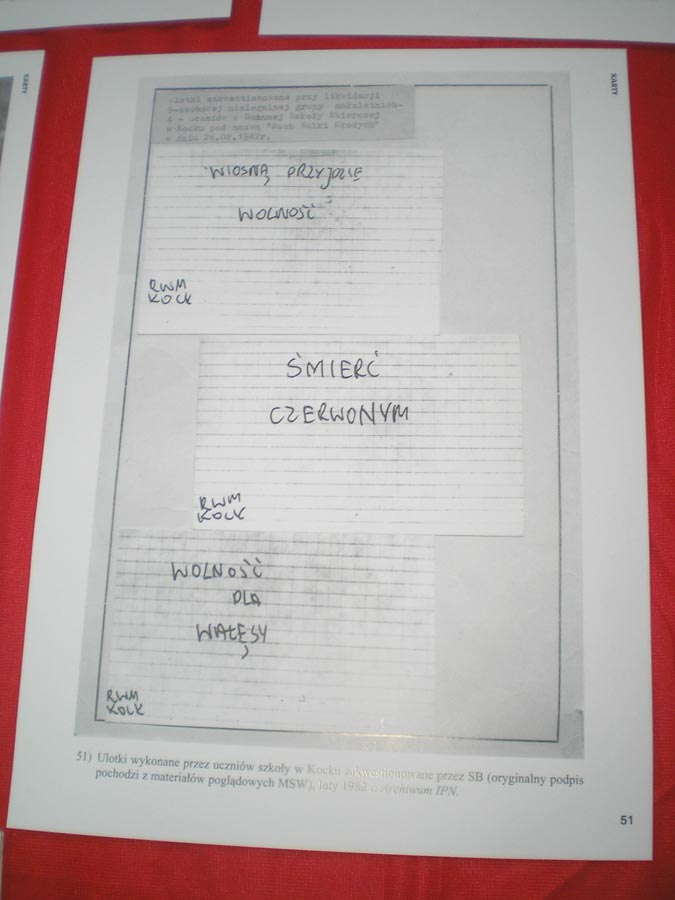 KARTY
KARTY
Ulotki zakwestionowane przy likwidacji
5-osobowej nielegalnej grupy małoletnich-
- uczniów z Gminnej Szkoły Zbiorczej
w Kocku pod nazwą "Ruch Walki Młodych"
w dniu 26.02.1982r.
WIOSNĄ PRZYJDZIE
WOLNOŚĆ
RWM
KOCK
ŚMIERĆ
CZERWONYM
RWM
KOCK
WOLNOŚĆ
DLA
WAŁĘSY
RWM
KOCK
51) Ulotki wykonane przez uczniów szkoły w Kocku zakwestionowane przez SB (oryginalny podpis
pochodzi z materiałów poglądowych MSW), luty 1982 r. Archiwum IPN.
51